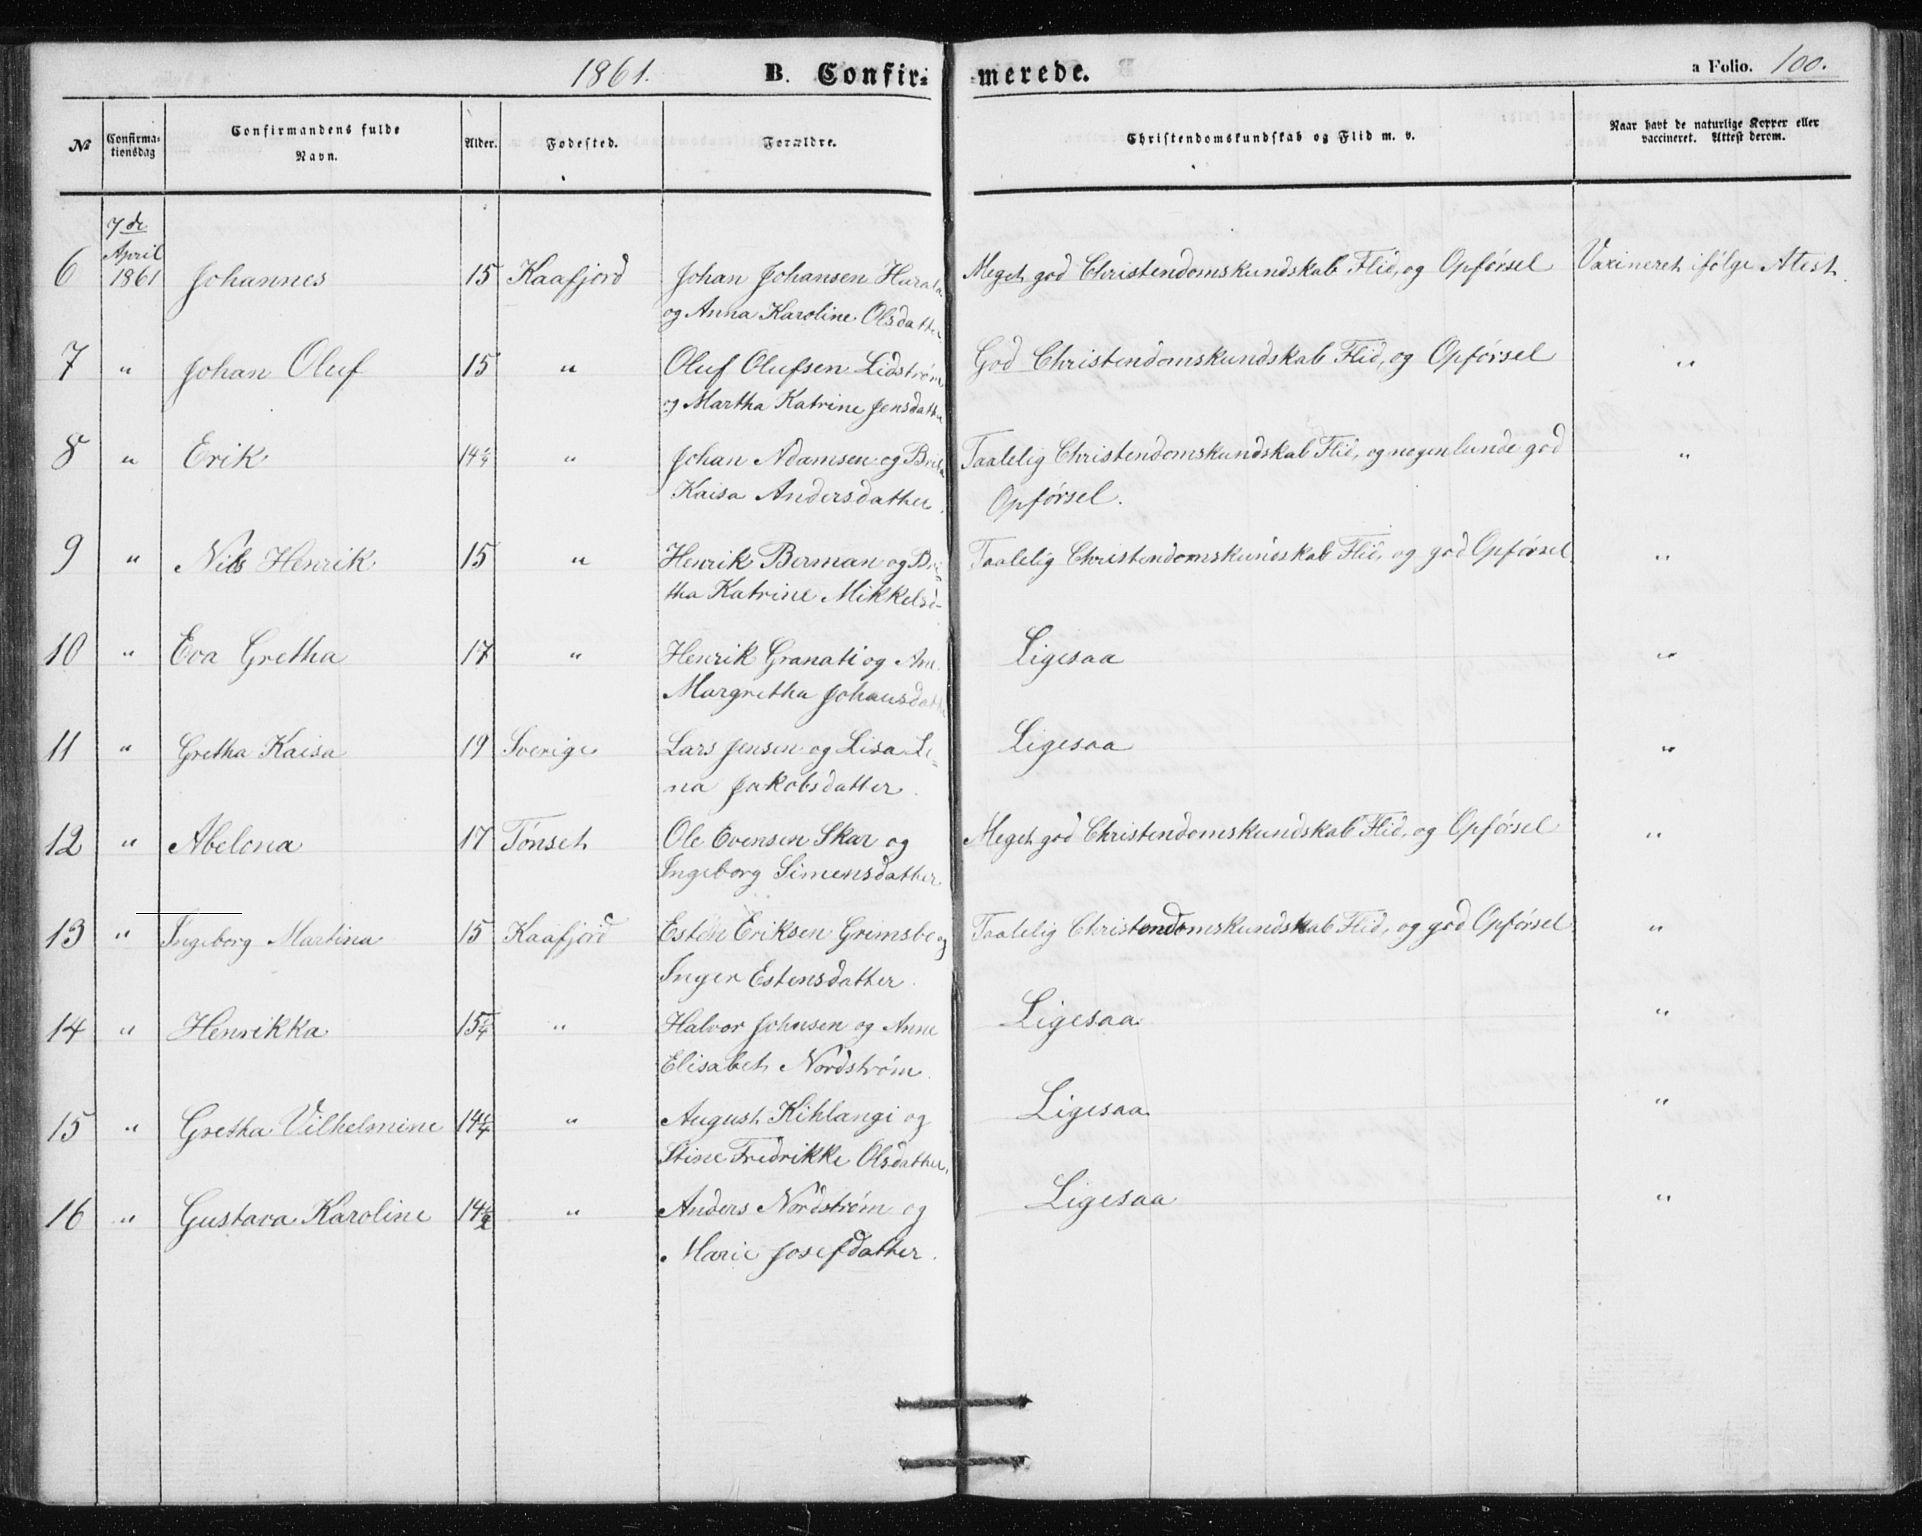 1861. B. Confir- merede. a Folio. 100.
No Confirma-tionsdag Confirmandens fulde Navn. Alder. Fødested. Forældre. Christendomskundskab og Flid m. v. Naar havt de naturlige Kopper eller vaccineret. Attest derom.
7de
April
6 1861 Johannes 15 Kaafjord Johan Johansen Meget god Christendomskundskab Flid, og Opførsel Vaxineret ifølge Atest.
og Anna Karoline Olsdatter
7 " Johan Oluf 15 " Oluf Olufsen Lidstrøm God Christendomskundskab Flid, og Opførsel "
og Martha Katrine Jensdatter
8 " Erik 14 1/4 " Johan Adamsen og Brita Taalelig Christendomskundskab Flid, og nogenlunde god "
Kaisa Andersdatter. Opførsel.
9 " Nils Henrik 15 " Henrik Berman og Bri- Taalelig Christendomskundskab Flid, og god Opførsel "
tha Katrine Mikkelsd-
10 " Eva Gretha 17 " Henrik Granati og Ligesaa "
Margretha Johansdatter
11 " Gretha Kaisa 19 Sverige Lars Jensen og Lisa Le- Ligesaa "
na Jakobsdatter.
12 " Abelona 17 Tønset Ole Evensen Skar og Meget god Christendomskundskab Flid, og Opførsel "
Ingeborg Simensdatter
13 " Ingeborg Martina 15 Kaafjord Esten Eriksen Grimsbo og Taalelig Christendomskundskab Flid, og god Opførsel "
Inger Estensdatter.
14 " Henrikka 15 1/4 " Halvor Johnsen og Anne Ligesaa "
Elisabet Nordstrøm.
15 " Gretha Vilhelmine 14 1/4 " August Kihlangi og Ligesaa "
Stine Fredrikke Olsdatter.
16 " Gustava Karoline 14 1/2 " Anders Nordstrøm og Ligesaa "
Marie Josefdatter.